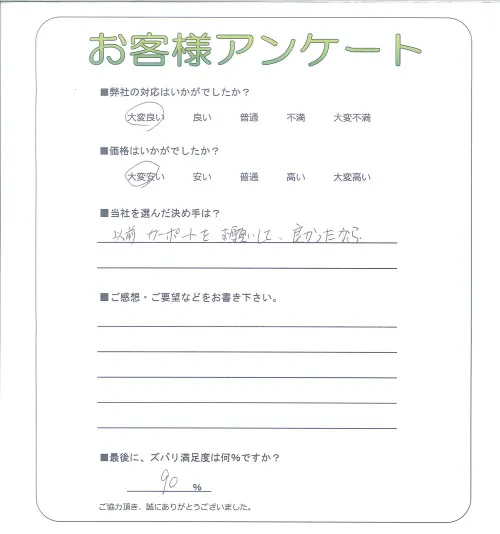 お客様アンケート
■弊社の対応はいかがでしたか？
大変良い 良い 普通 不満 大変不満
■価格はいかがでしたか？
大変安い 安い 普通 高い 大変高い
■当社を選んだ決め手は？
以前 カーポートを お願いして、良かったから
■ご感想・ご要望などをお書き下さい。
■最後に、ズバリ満足度は何%ですか？
90 %
ご協力頂き、誠にありがとうございました。